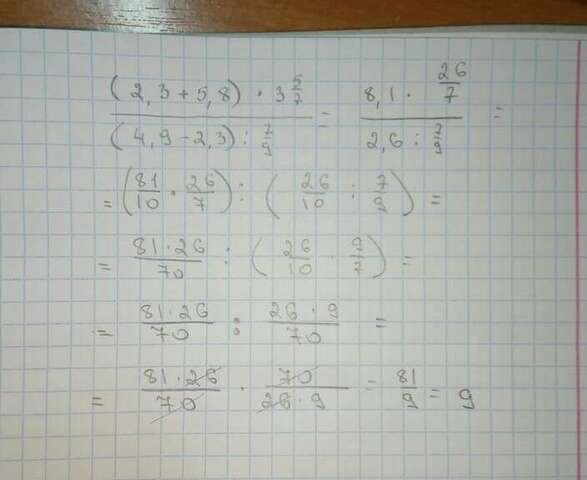 (2,3 + 5,8) · 3 5/7 / (4,9 - 2,3) : 7/9 = 8,1 · 26/7 / 2,6 : 7/9 =
= (81/10 · 26/7) : (26/10 : 7/9) =
= 81·26/70 : (26/10 · 9/7) =
= 81·26/70 : 26·9/70 =
= 81·26/70 · 70/26·9 = 81/9 = 9